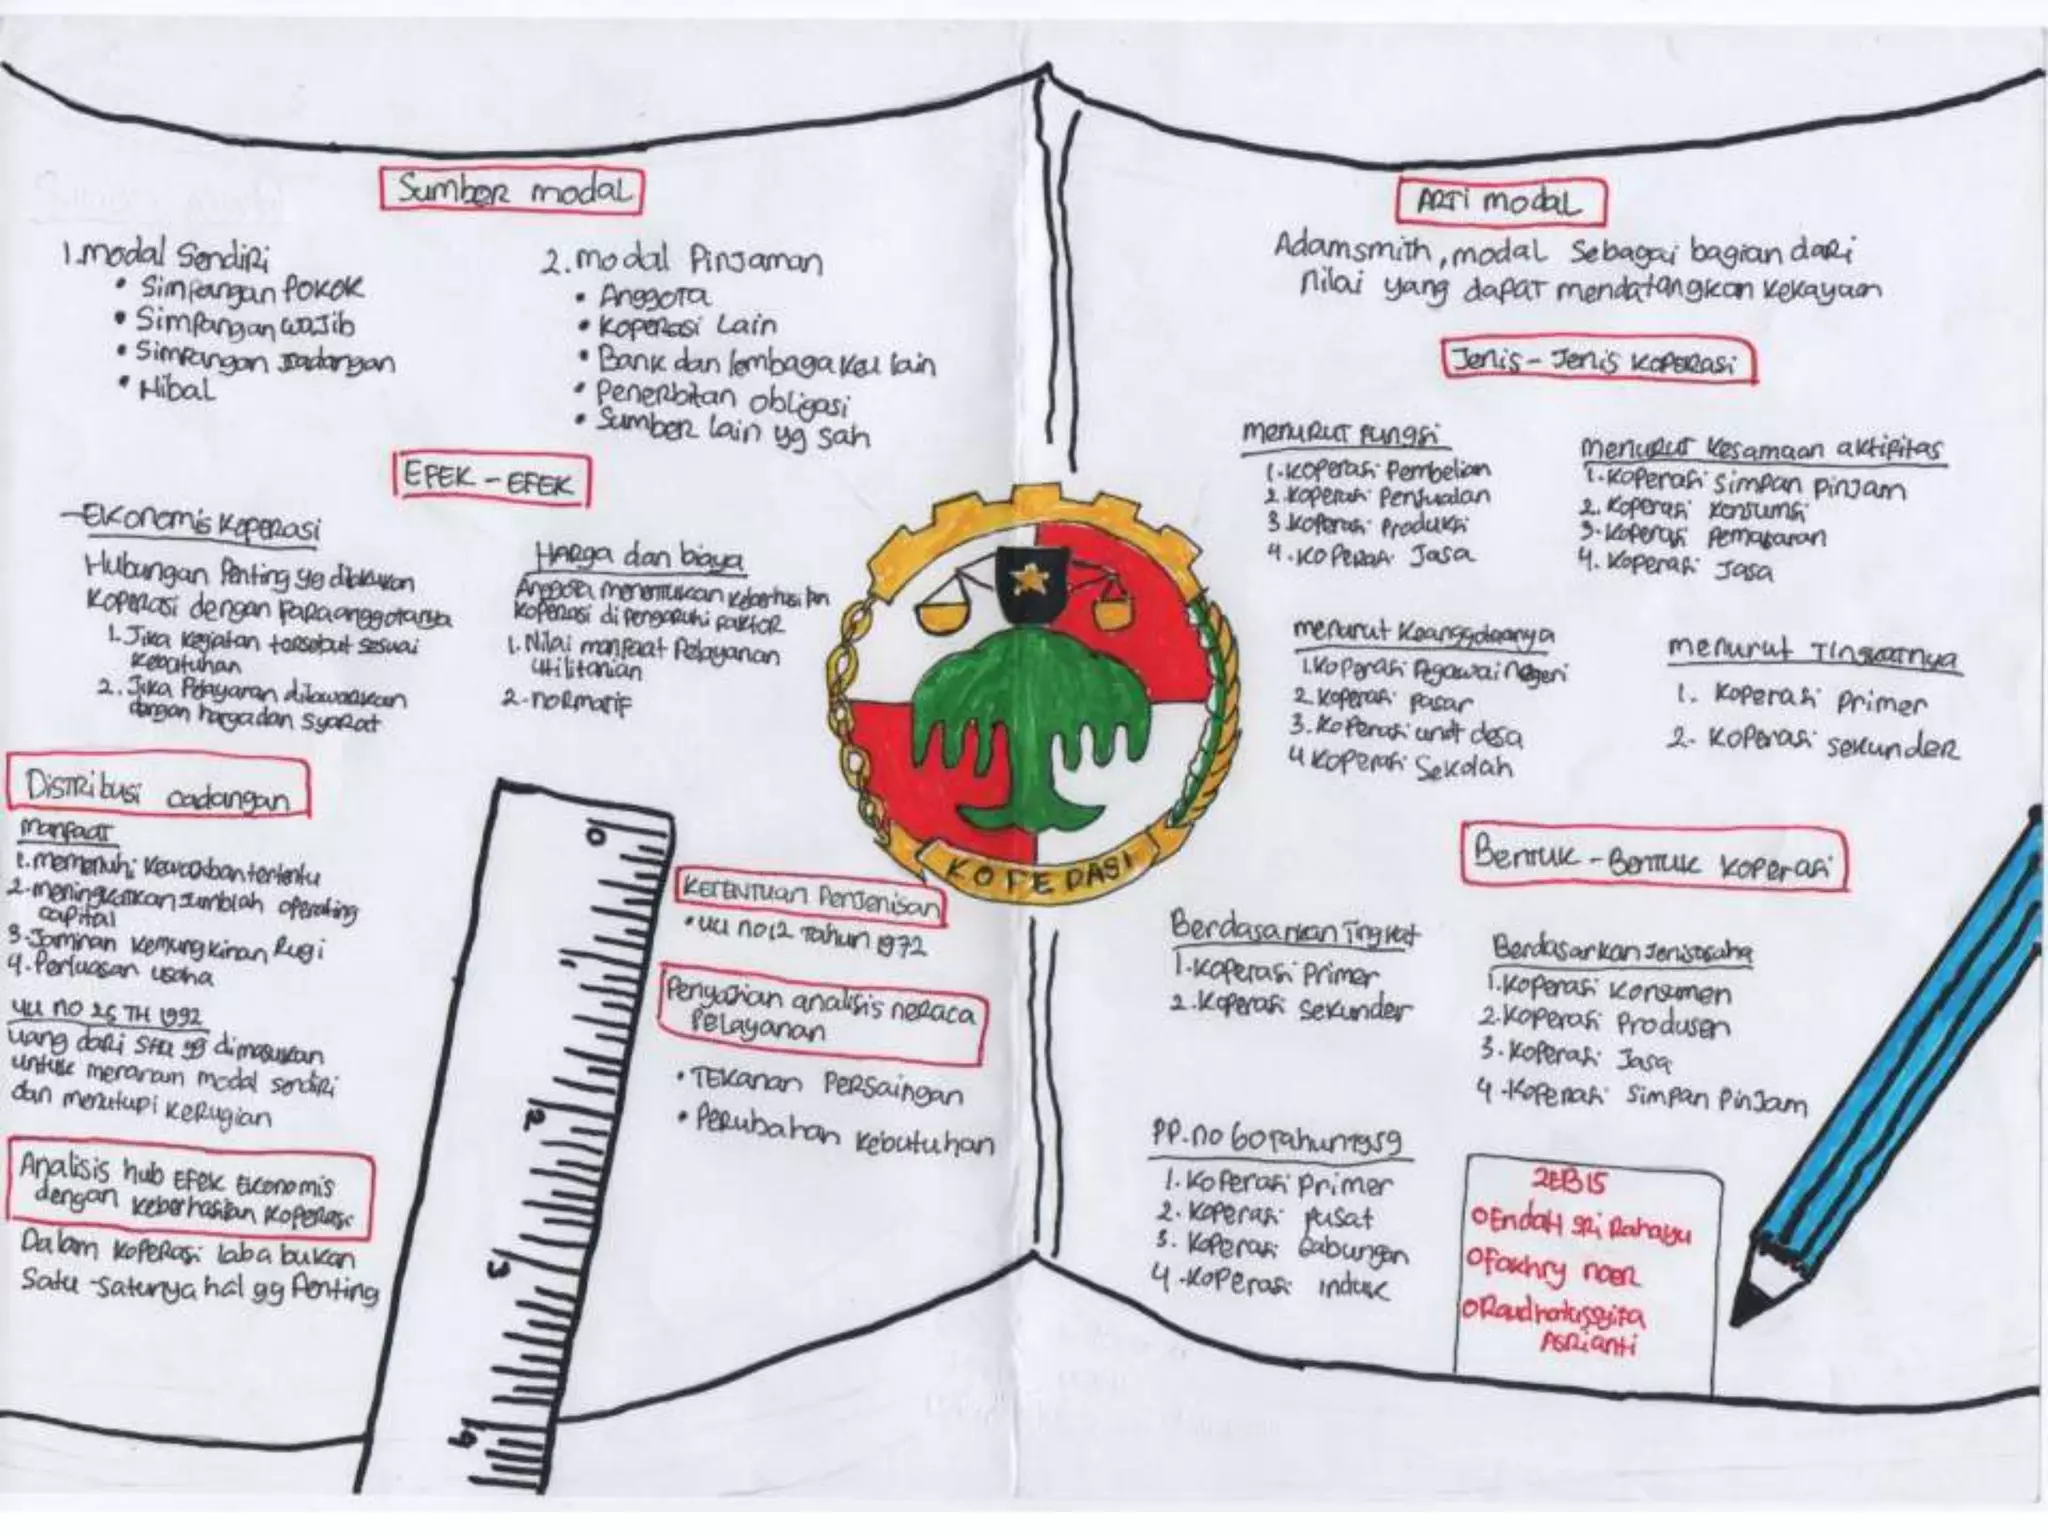 Sumber modal
1. modal Sendiri
• Simpangan Pokok
• Simpangan wajib
• Simpangan cadangan
• Hibal
2. modal Pinjaman
• Anggota
• Koperasi Lain
• Bank dan lembaga keu lain
• Penerbitan obligasi
• Sumber lain yg sah
EFEK - EFEK
- Ekonomis Koperasi
Hubungan Penting yg dilakukan
Koperasi dengan Para anggotanya
1. Jika kegiatan tersebut sesuai
kebutuhan
2. Jika Pelayaran ditawarkan
dengan harga dan syarat
Harga dan biaya
Anggota menentukan
koperasi di pengaruhi faktor
1. Nilai manfaat Pelayanan
utilitarian
2. normatif
Distribusi cadangan
manfaat
1. memenuhi kewajiban tertentu
2. meningkatkan Jumblah operating
capital
3. Jaminan kemungkinan Rugi
4. Perluasan usaha
UU NO 25 TH 1992
uang dari SHU yg dimasukan
untuk menanam modal sendiri
dan menutupi kerugian
Analisis hub Efek Ekonomis
dengan keberhasilan Koperasi
Dalam Koperasi laba bukan
Satu-satunya hal yg Penting
0
1
2
3
4
Ketentuan Penjenisan
• UU no 12 Tahun 1972
Penyajian analisis neraca
Pelayanan
• Tekanan Persaingan
• Perubahan kebutuhan
KOPERASI
Arti modal
Adamsmith, modal Sebagai bagian dari
nilai yang dapat mendatangkan kekayaan
Jenis - Jenis Koperasi
menurut Fungsi
1. Koperasi Pembelian
2. Koperasi Penjualan
3. Koperasi Produksi
4. Koperasi Jasa
menurut kesamaan aktifitas
1. Koperasi simpan pinjam
2. Koperasi konsumsi
3. Koperasi Pemasaran
4. Koperasi Jasa
menurut Keanggotaanya
1. Koperasi Pegawai Negeri
2. Koperasi Pasar
3. Koperasi unit desa
4 Koperasi Sekolah
menurut Tingkatnya
1. Koperasi Primer
2. Koperasi sekunder
Bentuk - Bentuk Koperasi
Berdasarkan Tingkat
1. Koperasi Primer
2. Koperasi Sekunder
Berdasarkan Jenis usaha
1. Koperasi Konsumen
2. Koperasi Produsen
3. Koperasi Jasa
4. Koperasi Simpan Pinjam
PP. no 60 Tahun 1959
1. Koperasi Primer
2. Koperasi Pusat
3. Koperasi Gabungan
4. Koperasi induk
2EB15
O Endah Sri Rahayu
O Fakhry noer
O Raudhatussyifa
Asrianti